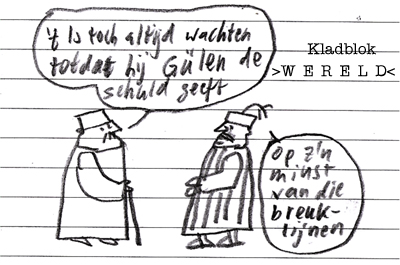 't Is toch altijd wachten
totdat hij Gülen de
schuld geeft
Kladblok
>WERELD<
Op z'n
minst
van die
breuk-
lijnen